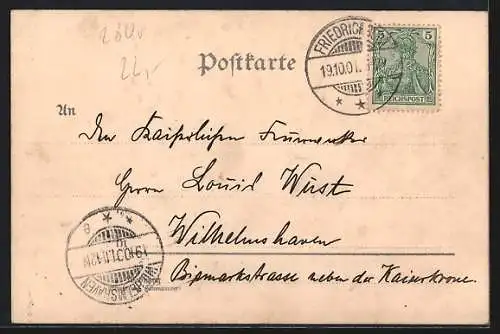 Postkarte
19.10.01.
5 5
REICHSPOST
An
Den Kaiserlichen
Herrn Louis Wüst
Wilhelmshaven
Bismarkstrasse neben der Kaiserkrone.
WILHELMSHAVEN
19.10.01.